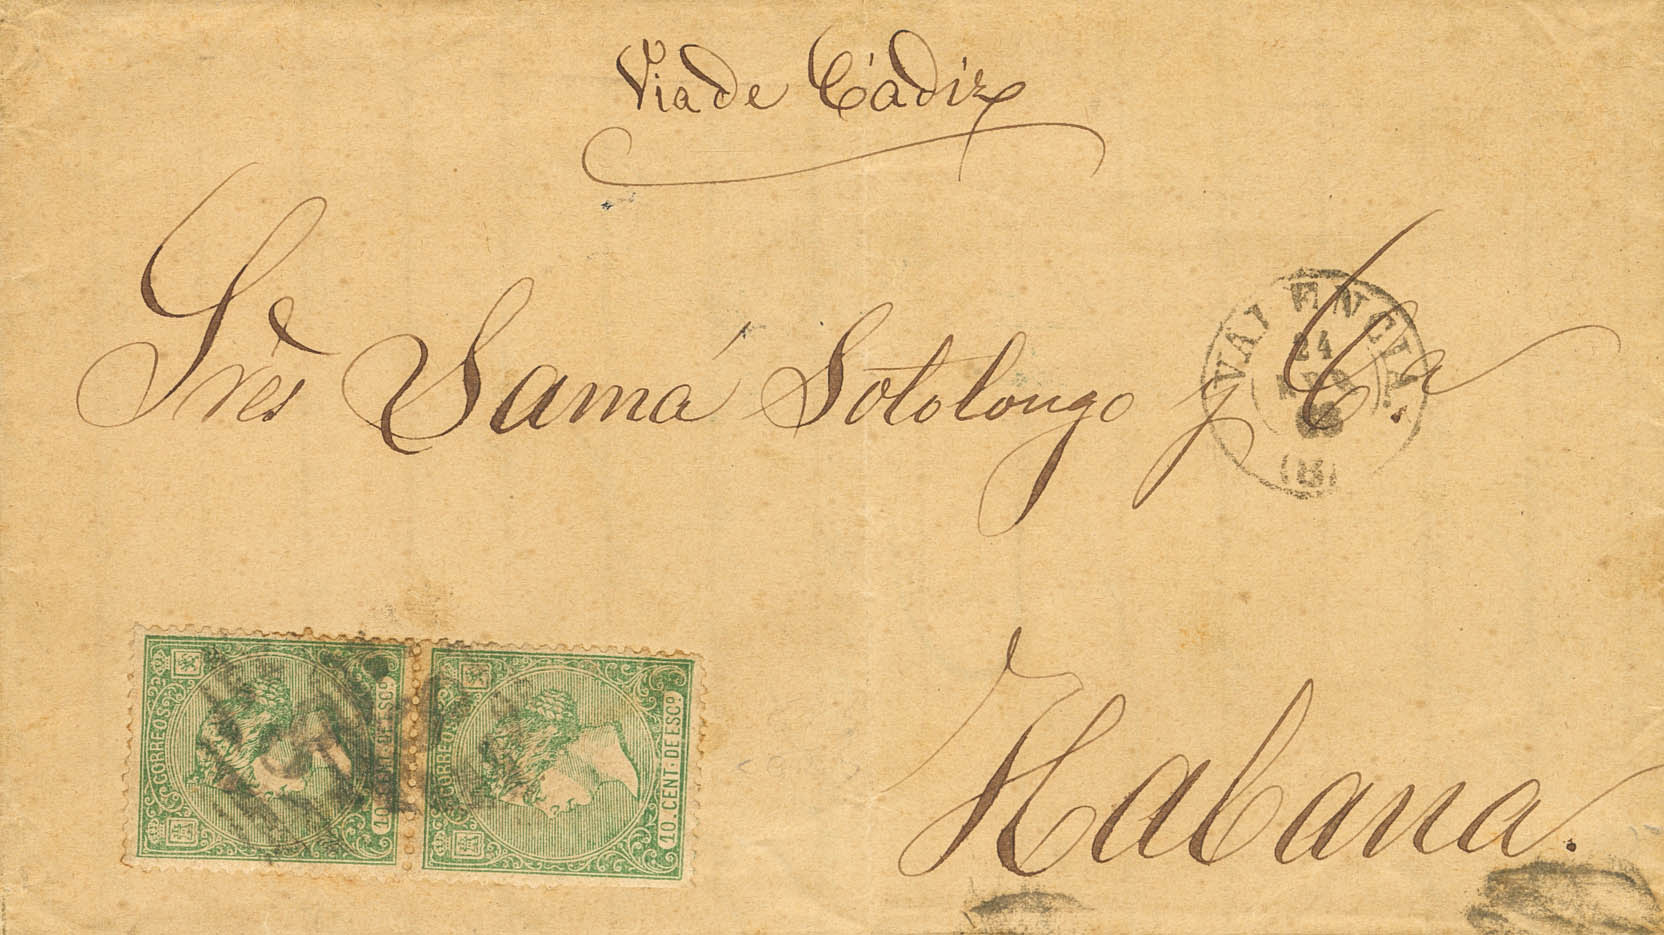 Via de Cádiz
Sres Samá Sotolongo y Ca.
VALENCIA.
24
66
(B)
Habana.
CORREOS
10 CENT. DE ESCO.
CORREOS
10. CENT. DE ESCO.